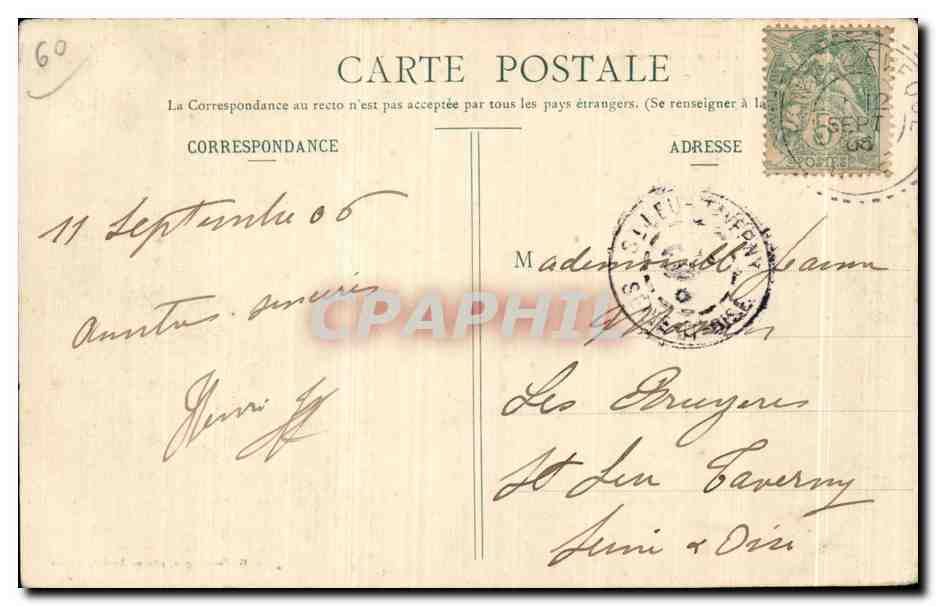 60
CARTE POSTALE
La Correspondance au recto n'est pas acceptée par tous les pays étrangers. (Se renseigner à la
CORRESPONDANCE
ADRESSE
12
SEPT
5
POSTES
11 Septembre 06
sincères
Henri
ST LEU-TAVERNY
SEINE-ET-OISE
Mademoiselle Jeanne
Les Bruyeres
St Leu Taverny
Seine & Oise
CPAPHIL